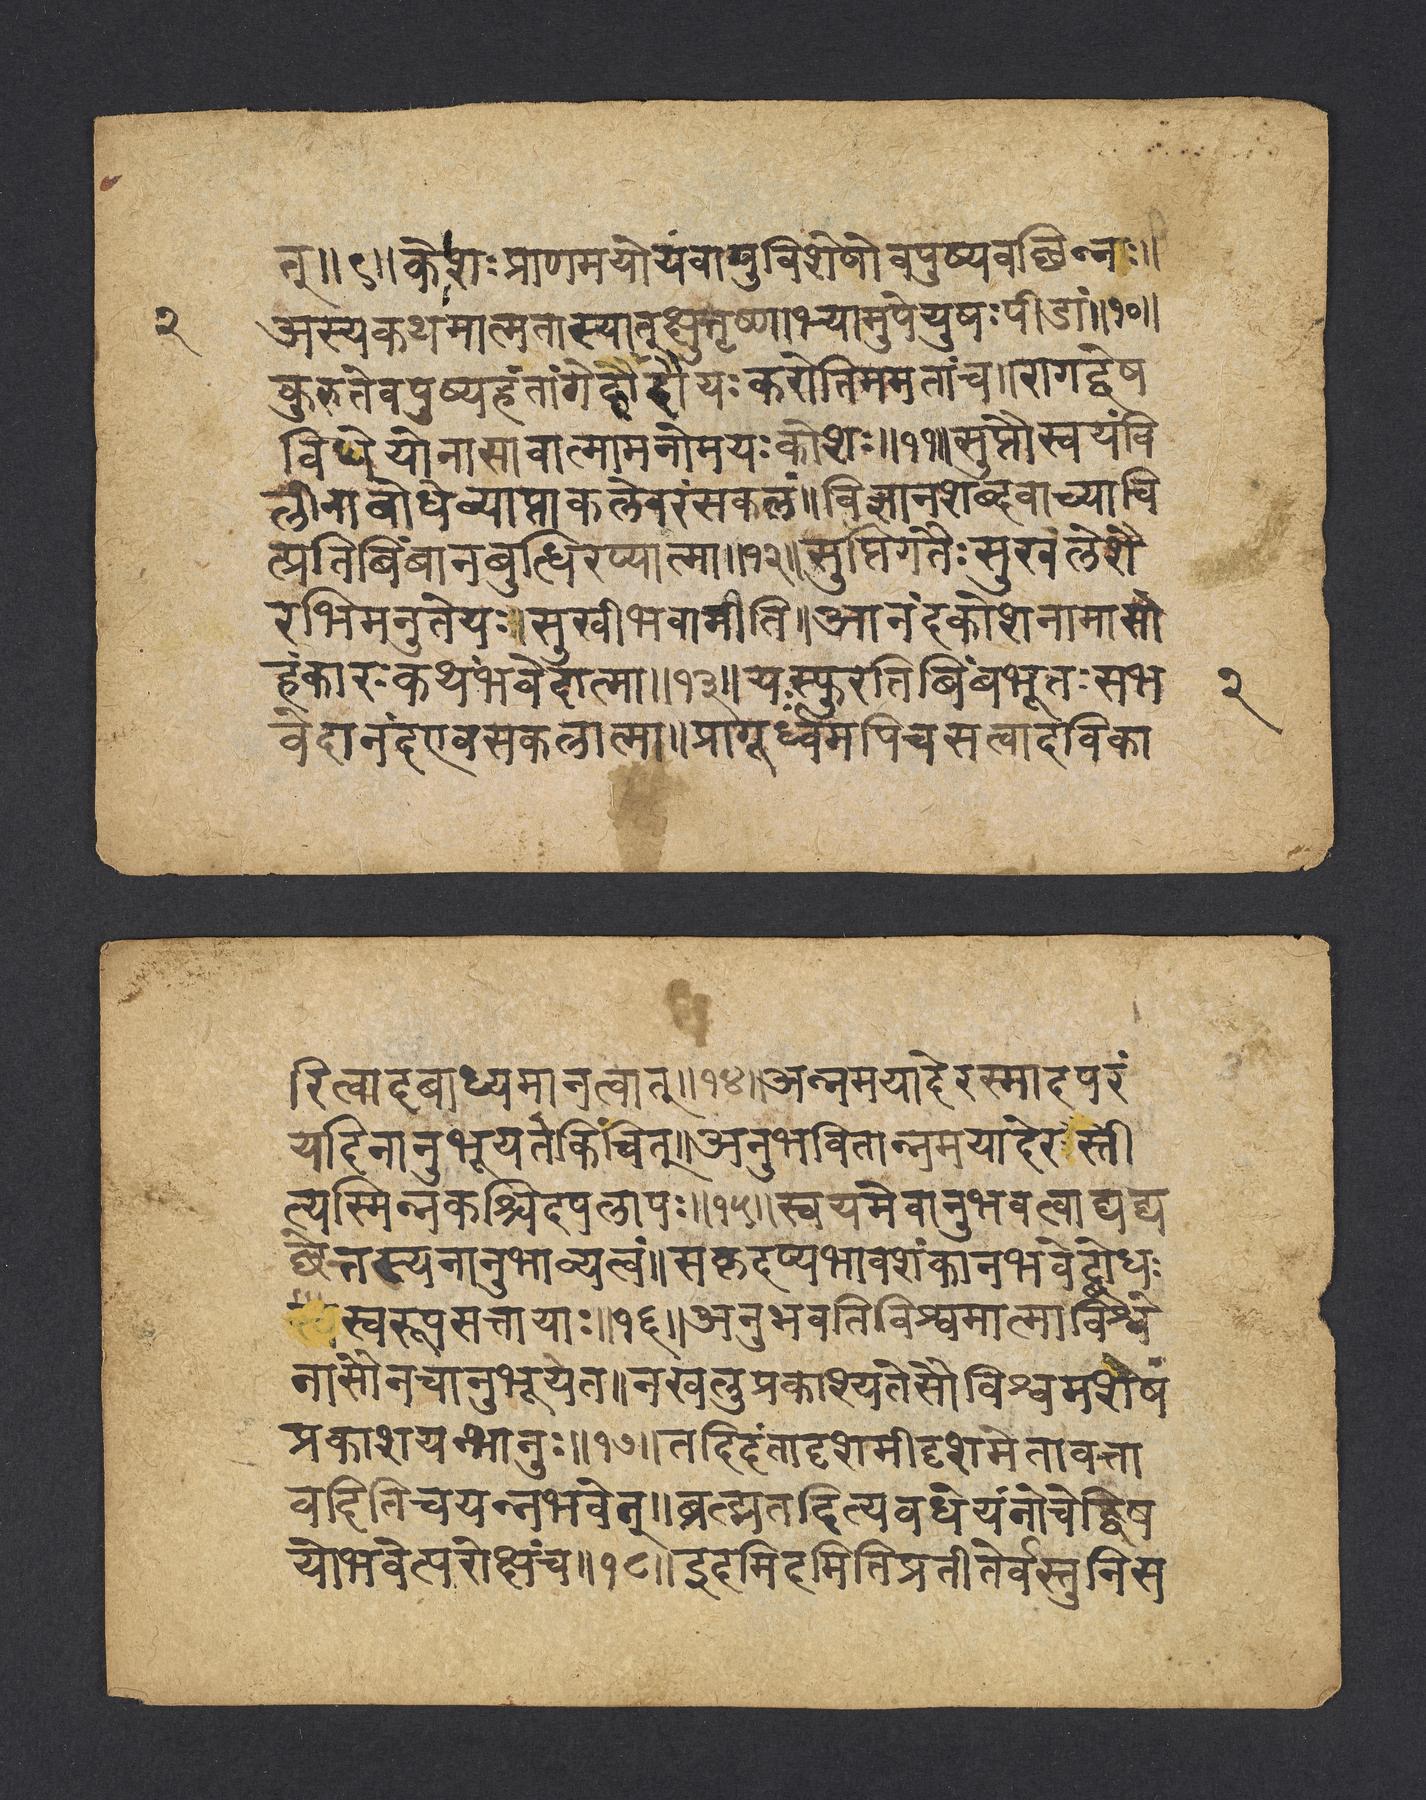 त्॥९॥कोशःप्राणमयोयंवायुविशेषोवपुष्यवछिन्नः॥
२
अस्यकथमात्मतास्यात्क्षुत्तृष्णाभ्यामुपेयुषःपीडां॥१०॥
कुरुतेवपुष्यहंतांगेहादौयःकरोतिममतांच॥रागद्वेष
विधेयोनासावात्मामनोमयःकोशः॥११॥सुप्तौस्वयंवि
लीनाबोधेव्याप्ताकलेवरंसकलं॥विज्ञानशब्दवाच्याचि
त्प्रतिबिंबानबुद्धिरप्यात्मा॥१२॥सुप्तिगतैःसुखलेशै
रभिमनुतेयः॥सुखीभवामीति॥आनंदकोशनामासो
हंकारःकथंभवेदात्मा॥१३॥यःस्फुरतिबिंबभूतःसभ
२
वेदानंदएवसकलात्मा॥प्रागूर्ध्वमपिचसत्वादविका
रित्वादबाध्यमानत्वात्॥१४॥अन्नमयादेरस्मादपरं
यदिनानुभूयतेकिंचित्॥अनुभवितान्नमयादेरस्ती
त्यस्मिन्नकश्चिदपलापः॥१५॥स्वयमेवानुभवत्वाद्यद्य
प्येतस्यनानुभाव्यत्वं॥सकृदप्यभावशंकानभवेद्बोधः
स्वस्वरूपसत्तायाः॥१६॥अनुभवतिविश्वमात्माविश्वे
नासौनचानुभूयेत॥नखलुप्रकाश्यतेसौविश्वमशेषं
प्रकाशयन्भानुः॥१७॥तदिदंतादृशमीदृशमेतावत्ता
वदितिचयन्नभवेत्॥ब्रह्मतदित्यवधेयंनोचेद्विष
योभवेत्परोक्षंच॥१८॥इदमिदमितिप्रतीतेर्वस्तुनिस